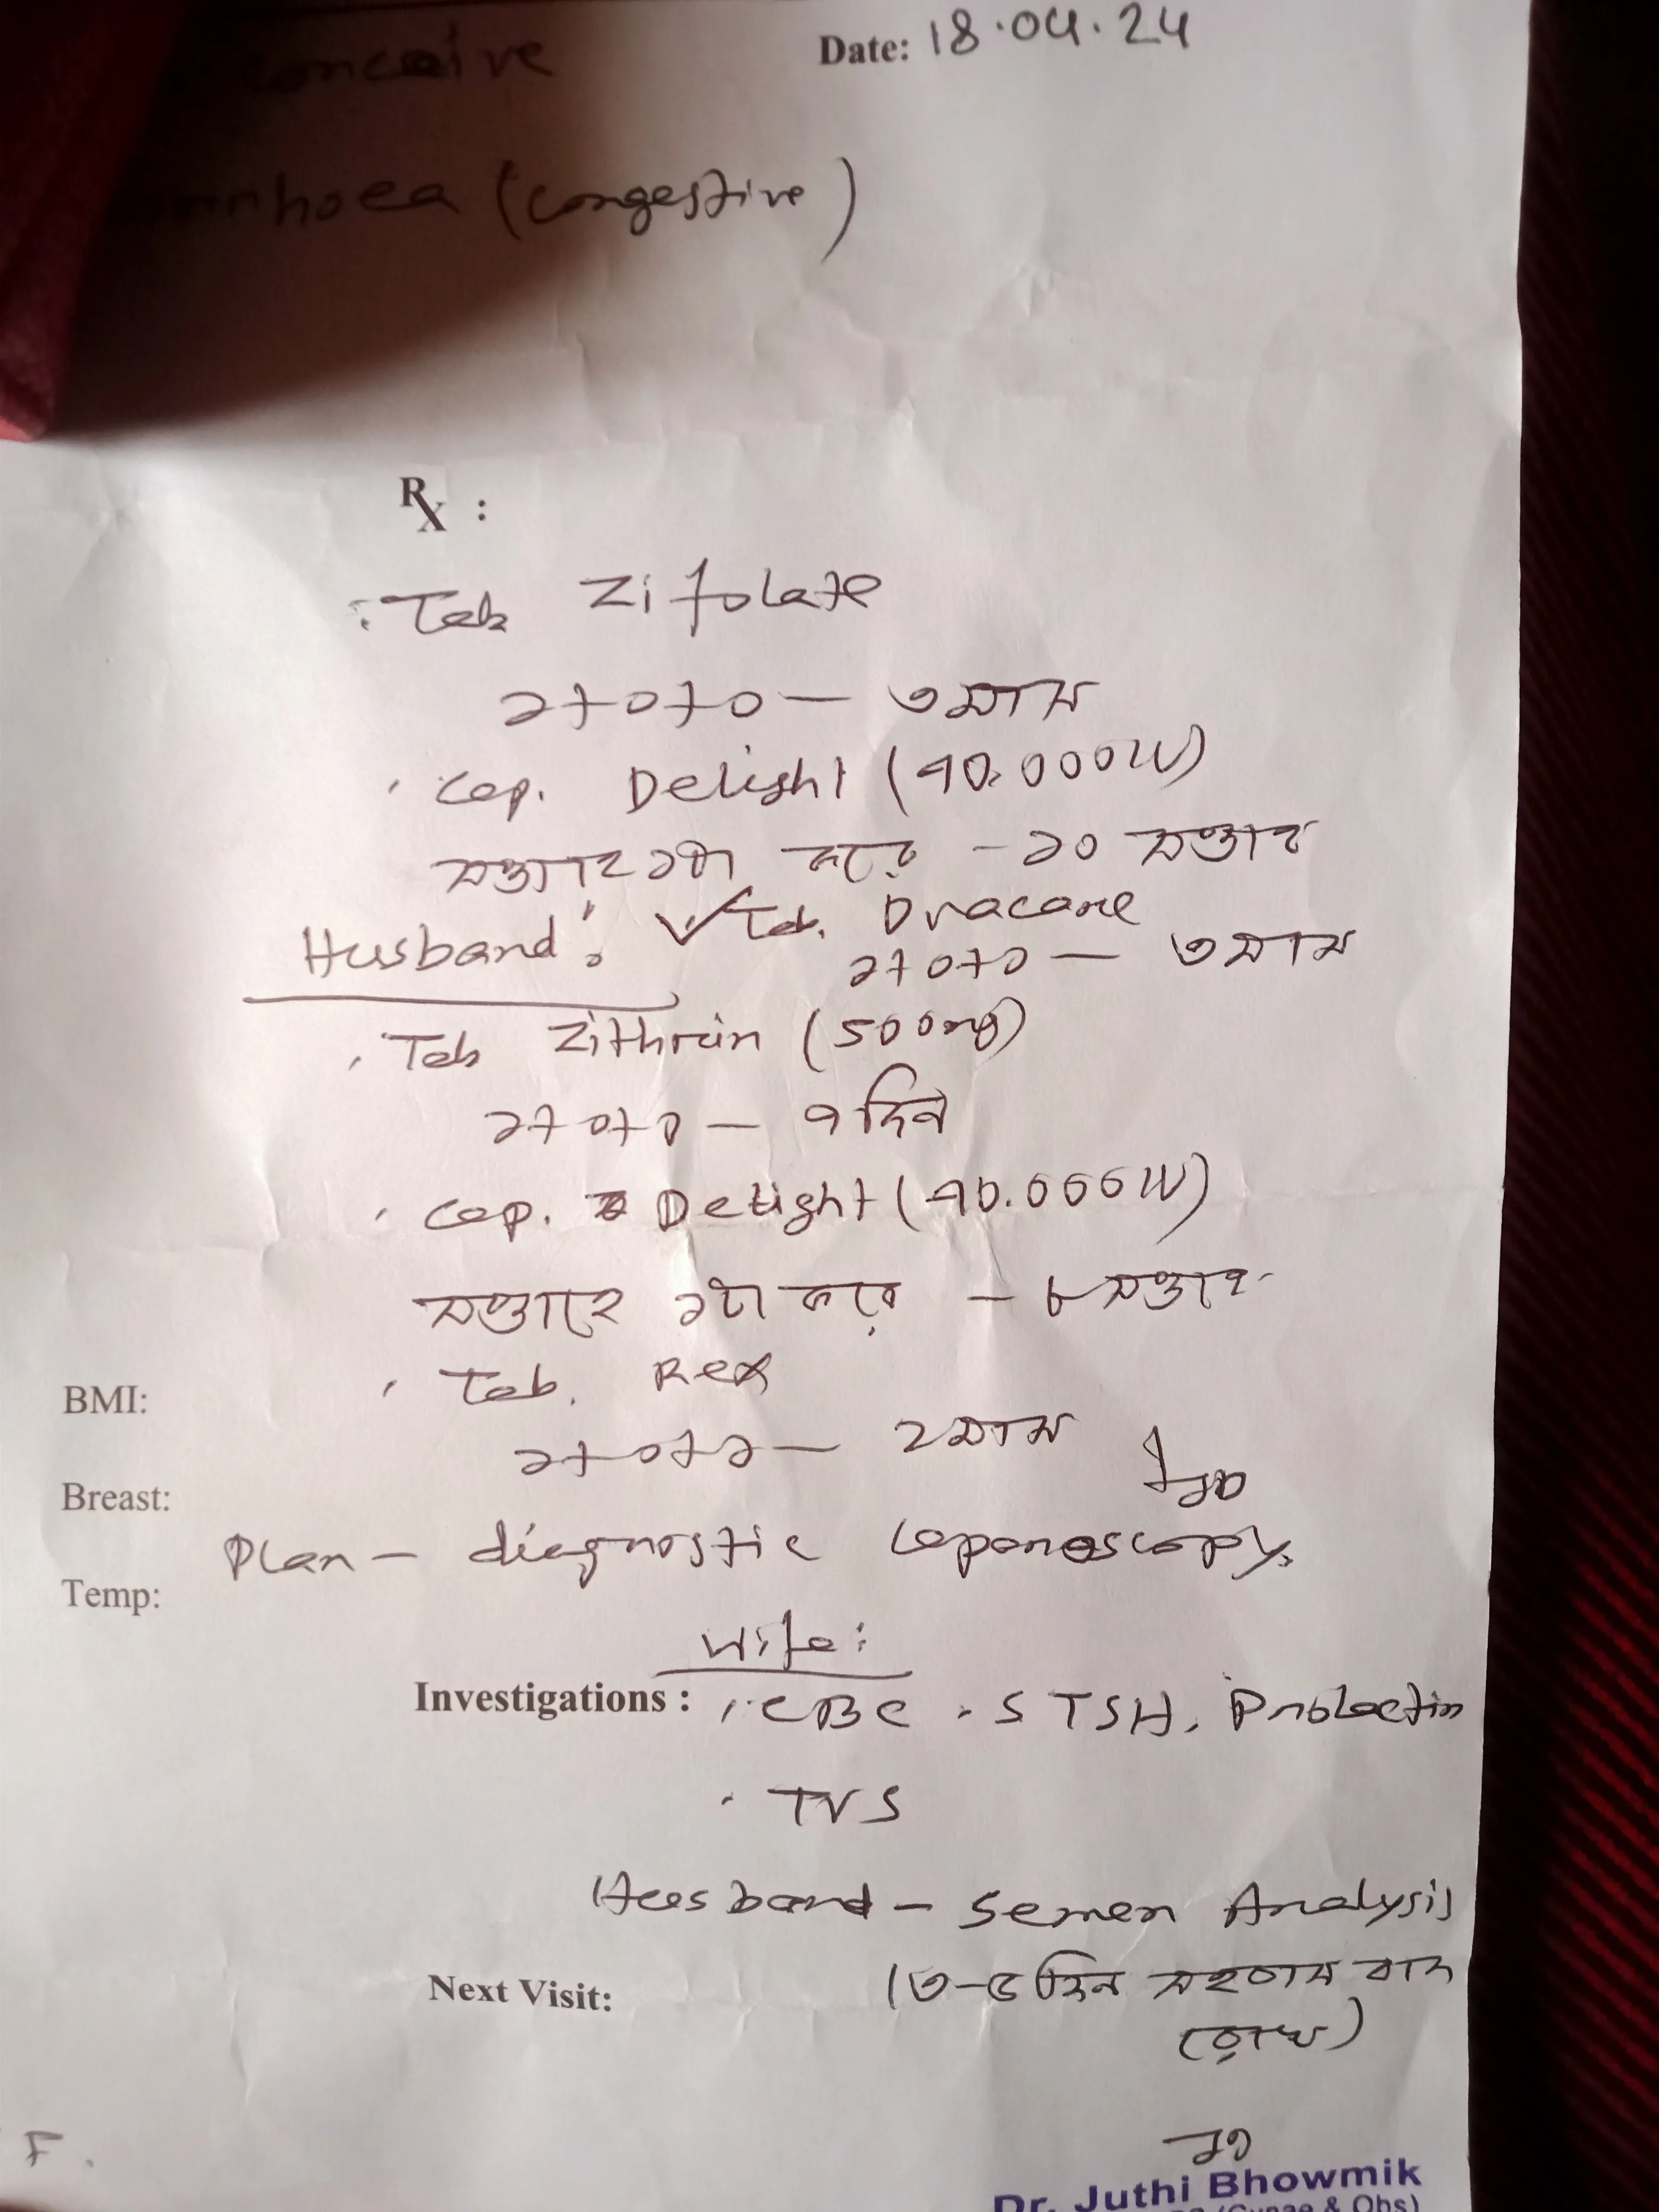 Date: 18.04.24
conceive
rrhoea (congestive)
Rx :
Tab Zifolate
১+০+০ — ৩মাস
Cap. Delight (40.000IU)
সপ্তাহে ১টা করে - ১০ সপ্তাহ
Husband: ✓ Tab.
১+০+০ — ৩মাস
Tab Zithrin (500mg)
১+০+০ — ৭দিন
Cap. Delight (40.000IU)
সপ্তাহে ১টা করে — ৮সপ্তাহ
Tab. Rex
১+০+১ — ২মাস
BMI:
Breast:
Plan — diagnostic laparoscopy.
Temp:
Wife:
Investigations : CBC . S TSH, Prolactin
TVS
Husband — Semen Analysis
Next Visit: (৩-৫দিন সহবাস বাদ
রেখে)
F.
Dr. Juthi Bhowmik
(Gynae & Obs)